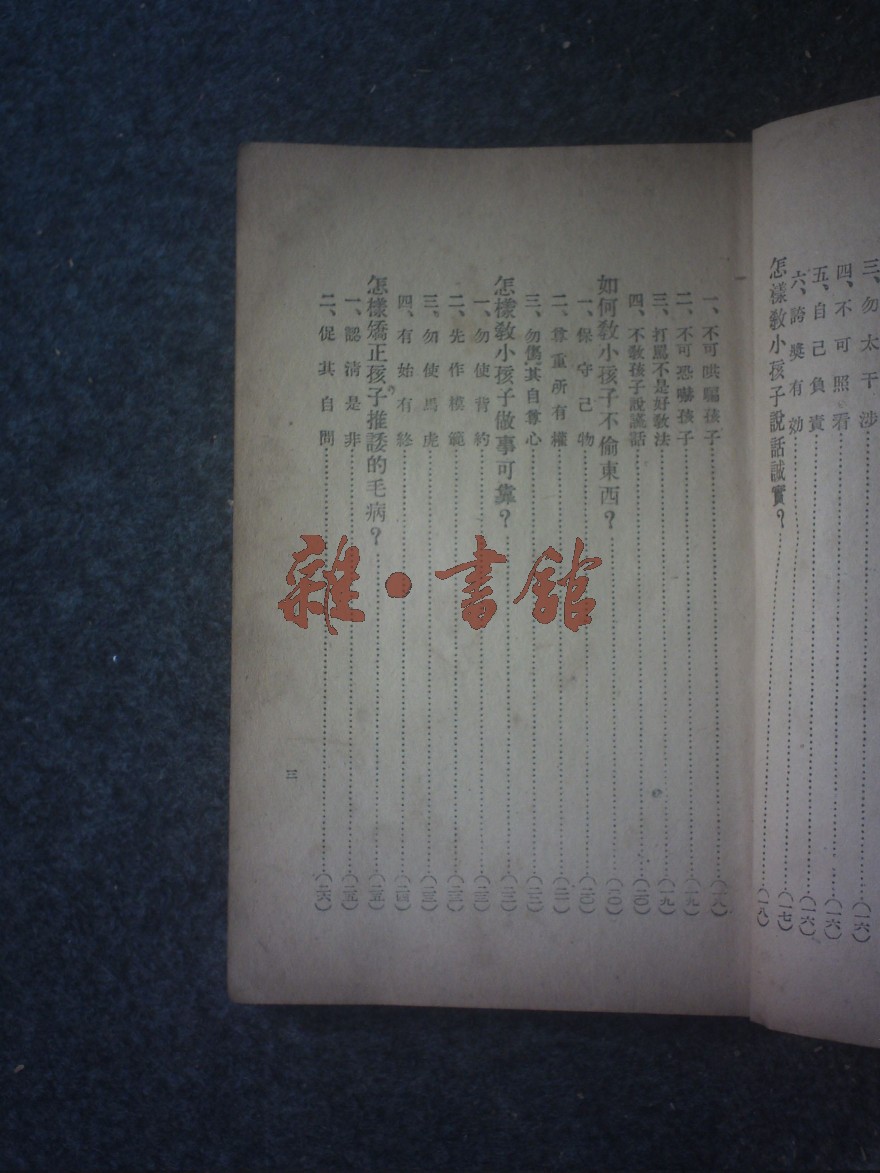 三、勿太干涉……(一六)
四、不可照看……(一六)
五、自己負責……(一六)
六、誇獎有効……(一七)
怎樣敎小孩子說話誠實?……(一八)
一、不可哄騙孩子……(一八)
二、不可恐嚇孩子……(一九)
三、打罵不是好敎法……(一九)
四、不敎孩子說謊話……(二〇)
如何敎小孩子不偷東西?……(二〇)
一、保守己物……(二〇)
二、尊重所有權……(二一)
三、勿傷其自尊心……(二二)
怎樣敎小孩子做事可靠?……(二三)
一、勿使背約……(二三)
二、先作模範……(二三)
三、勿使馬虎……(二三)
四、有始有終……(二四)
怎樣矯正孩子推諉的毛病?……(二五)
一、認清是非……(二五)
二、促其自問……(二六)
三
雜·書館